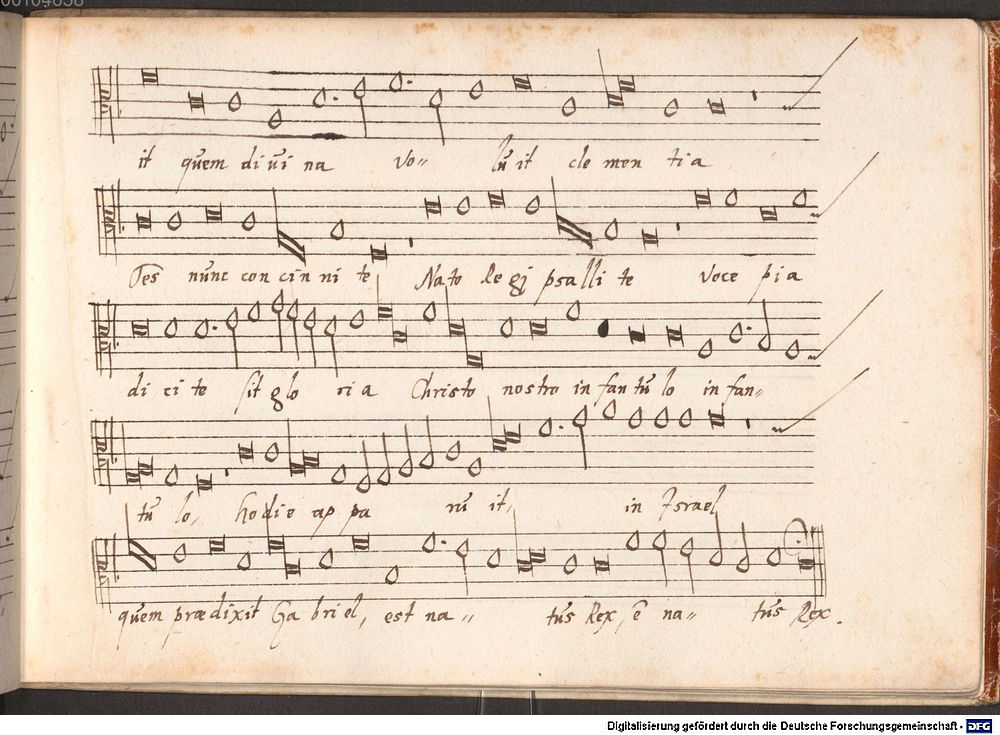 it quem diui na vo- lu it cle men tia
Oẽs nunc con cin ni te Na to Re gi psalli te voce pia
di ci te sit glo ria Christo nostro in fan tu lo in fan-
tu lo, hodie ap pa ru it, in Israel
quem prædixit Ga briel, est na- tus Rex, ẽ na- tus Rex.
Digitalisierung gefördert durch die Deutsche Forschungsgemeinschaft - DFG